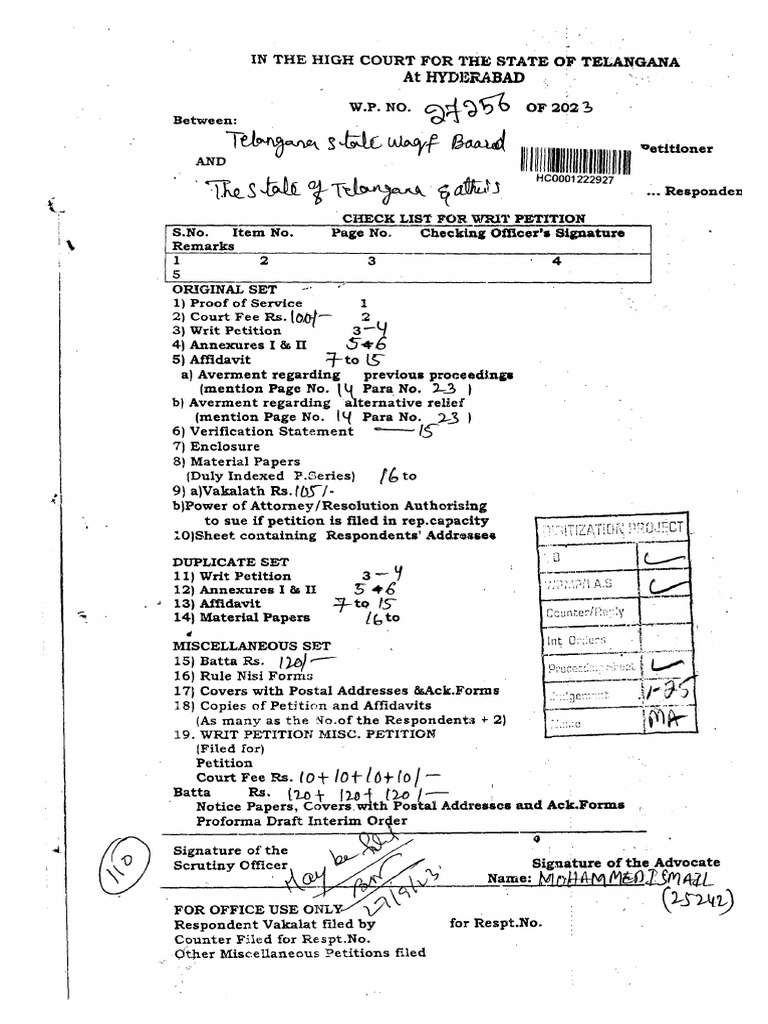 IN THE HIGH COURT FOR THE STATE OF TELANGANA
At HYDERABAD
W.P. NO. 27256 OF 2023
Between:
Telangana State Waqf Baord
Petitioner
HC0001222927
AND
The State of Telangana & others
... Responden
CHECK LIST FOR WRIT PETITION
S.No. Item No. Page No. Checking Officer's Signature
Remarks
1 2 3 4
5
ORIGINAL SET
1) Proof of Service 1
2) Court Fee Rs. 100/- 2
3) Writ Petition 3-4
4) Annexures I & II 5 & 6
5) Affidavit 7 to 15
a) Averment regarding previous proceedings
(mention Page No. 14 Para No. 23 )
b) Averment regarding alternative relief
(mention Page No. 14 Para No. 23 )
6) Verification Statement — 15
7) Enclosure
8) Material Papers
(Duly Indexed P.Series) 16 to
9) a)Vakalath Rs. 105/-
b)Power of Attorney/Resolution Authorising
to sue if petition is filed in rep.capacity
10)Sheet containing Respondents' Addresses
DUPLICATE SET
11) Writ Petition 3-4
12) Annexures I & II 5 & 6
13) Affidavit 7 to 15
14) Material Papers 16 to
MISCELLANEOUS SET
15) Batta Rs. 120/-
16) Rule Nisi Forms
17) Covers with Postal Addresses &Ack.Forms
18) Copies of Petition and Affidavits
(As many as the No.of the Respondents + 2)
19. WRIT PETITION MISC. PETITION
(Filed for)
Petition
Court Fee Rs. 10+10+10+10/-
Batta Rs. 120+ 120+ 120/-
Notice Papers, Covers with Postal Addresses and Ack.Forms
Proforma Draft Interim Order
DIGITIZATION PROJECT
WPMP/I.A.S
Counter/Reply
Int Orders
Proceeding sheet
Judgement 1-25
Name MA
110
Signature of the
Scrutiny Officer
May be
27/9/23
Signature of the Advocate
Name: MOHAMMED.ISMAIL
(25242)
FOR OFFICE USE ONLY
Respondent Vakalat filed by for Respt.No.
Counter Filed for Respt.No.
Other Miscellaneous Petitions filed